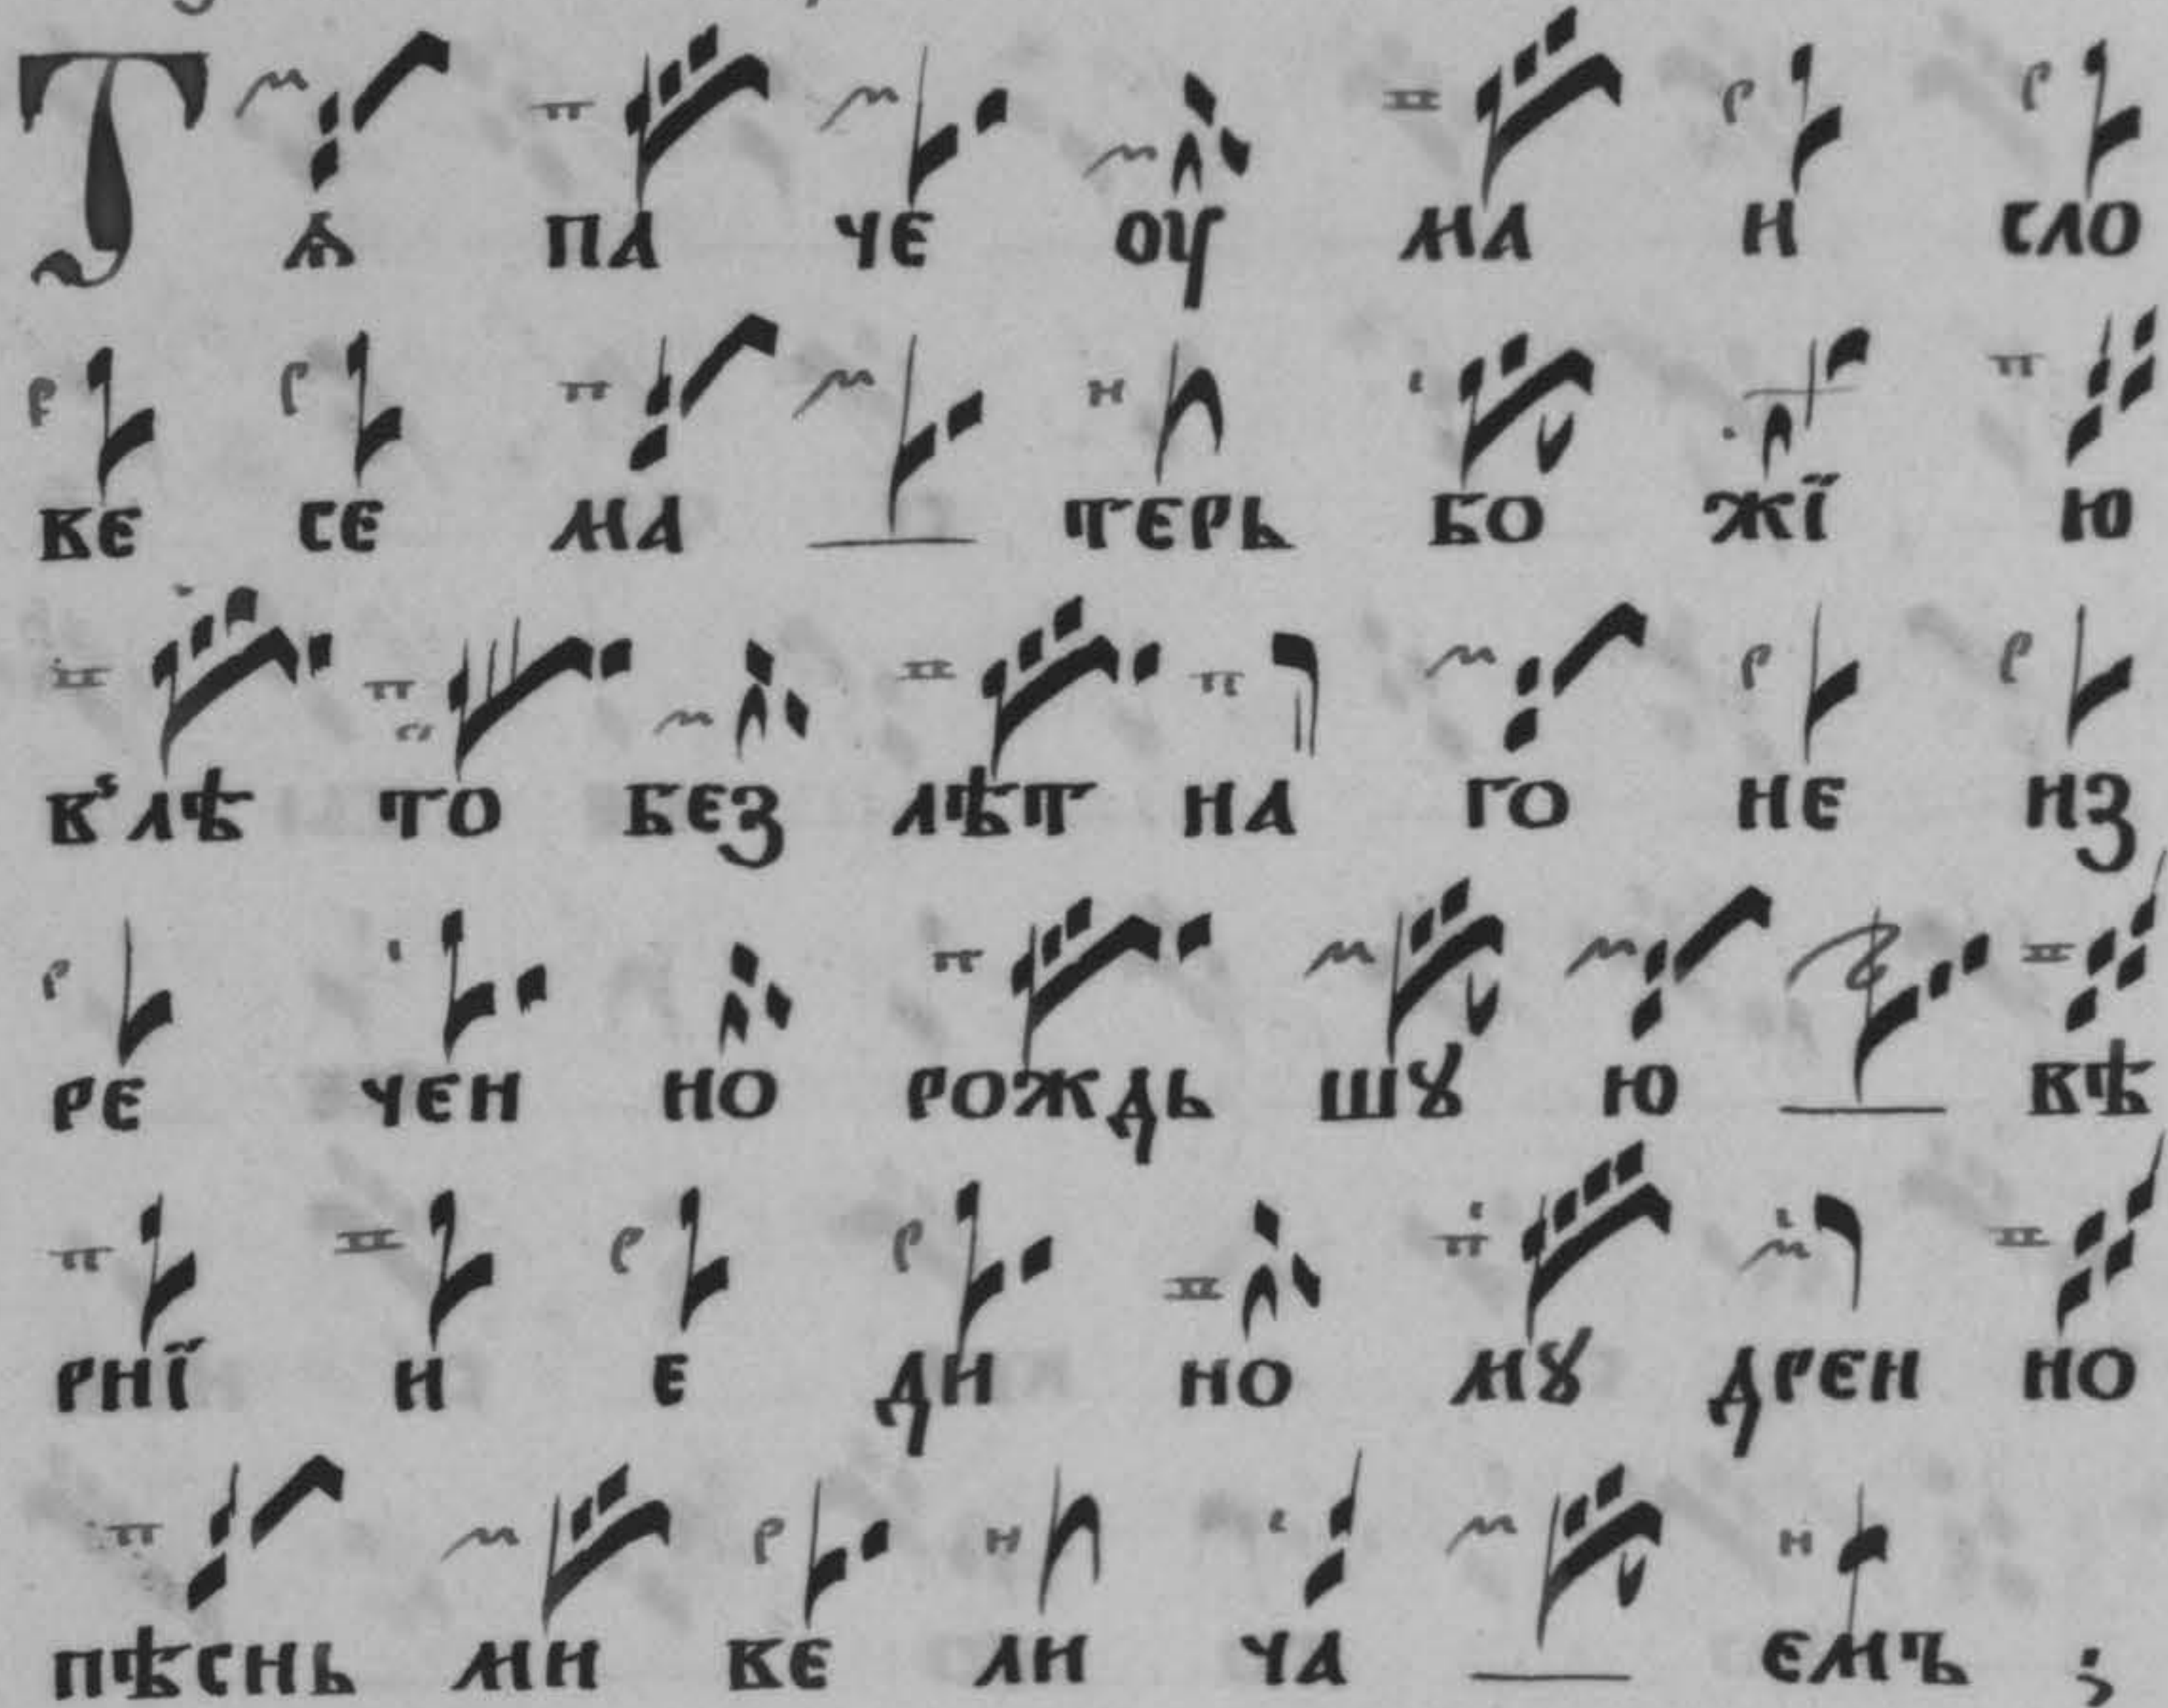 Тѧ па че оу ма и сло
ве се ма терь бо жї ю
в̾лѣ то без лѣт на го не из
ре чен но рождь шꙋ ю вѣ
рнї и е ди но мꙋ дрен но
пѣснь ми ве ли ча емъ